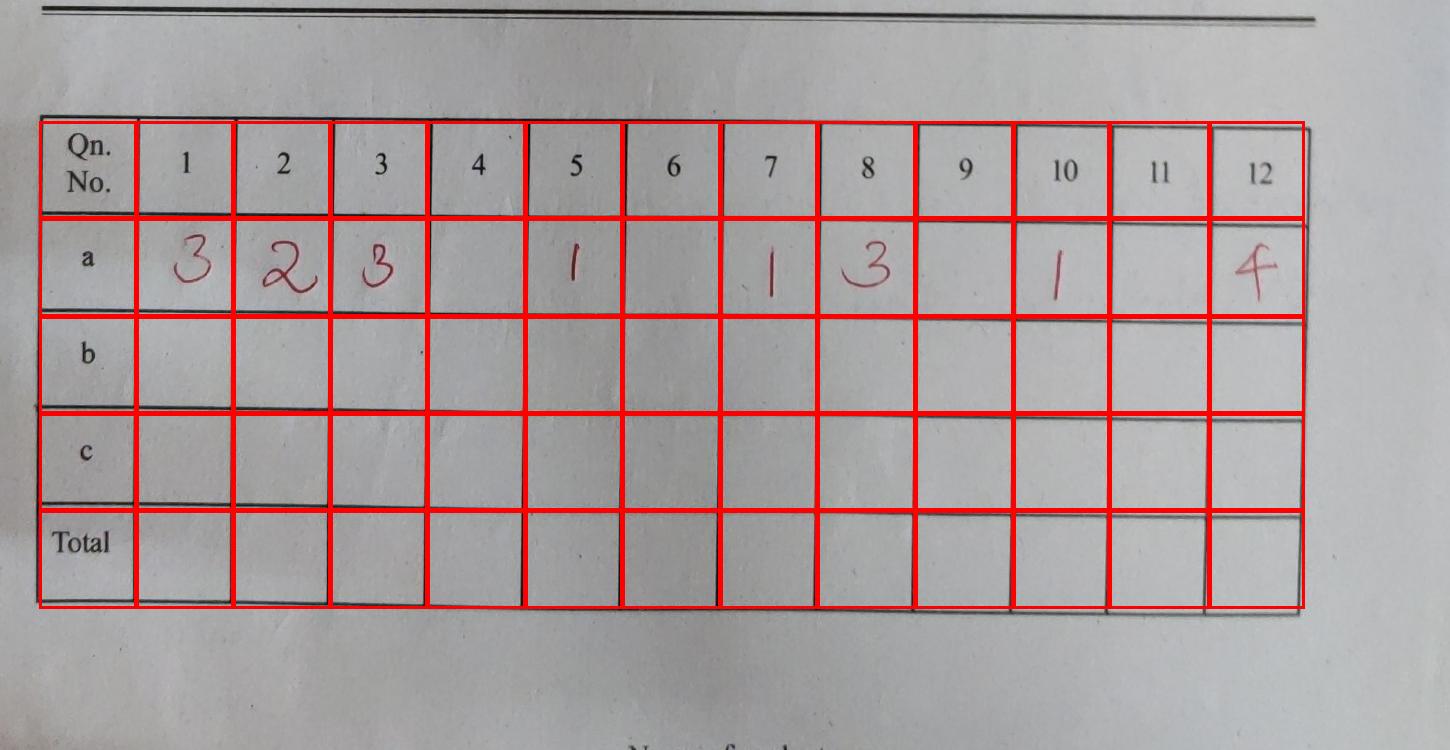 Qn. No. 1 2 3 4 5 6 7 8 9 10 11 12
a 3 2 3 1 1 3 1 4
b
c
Total